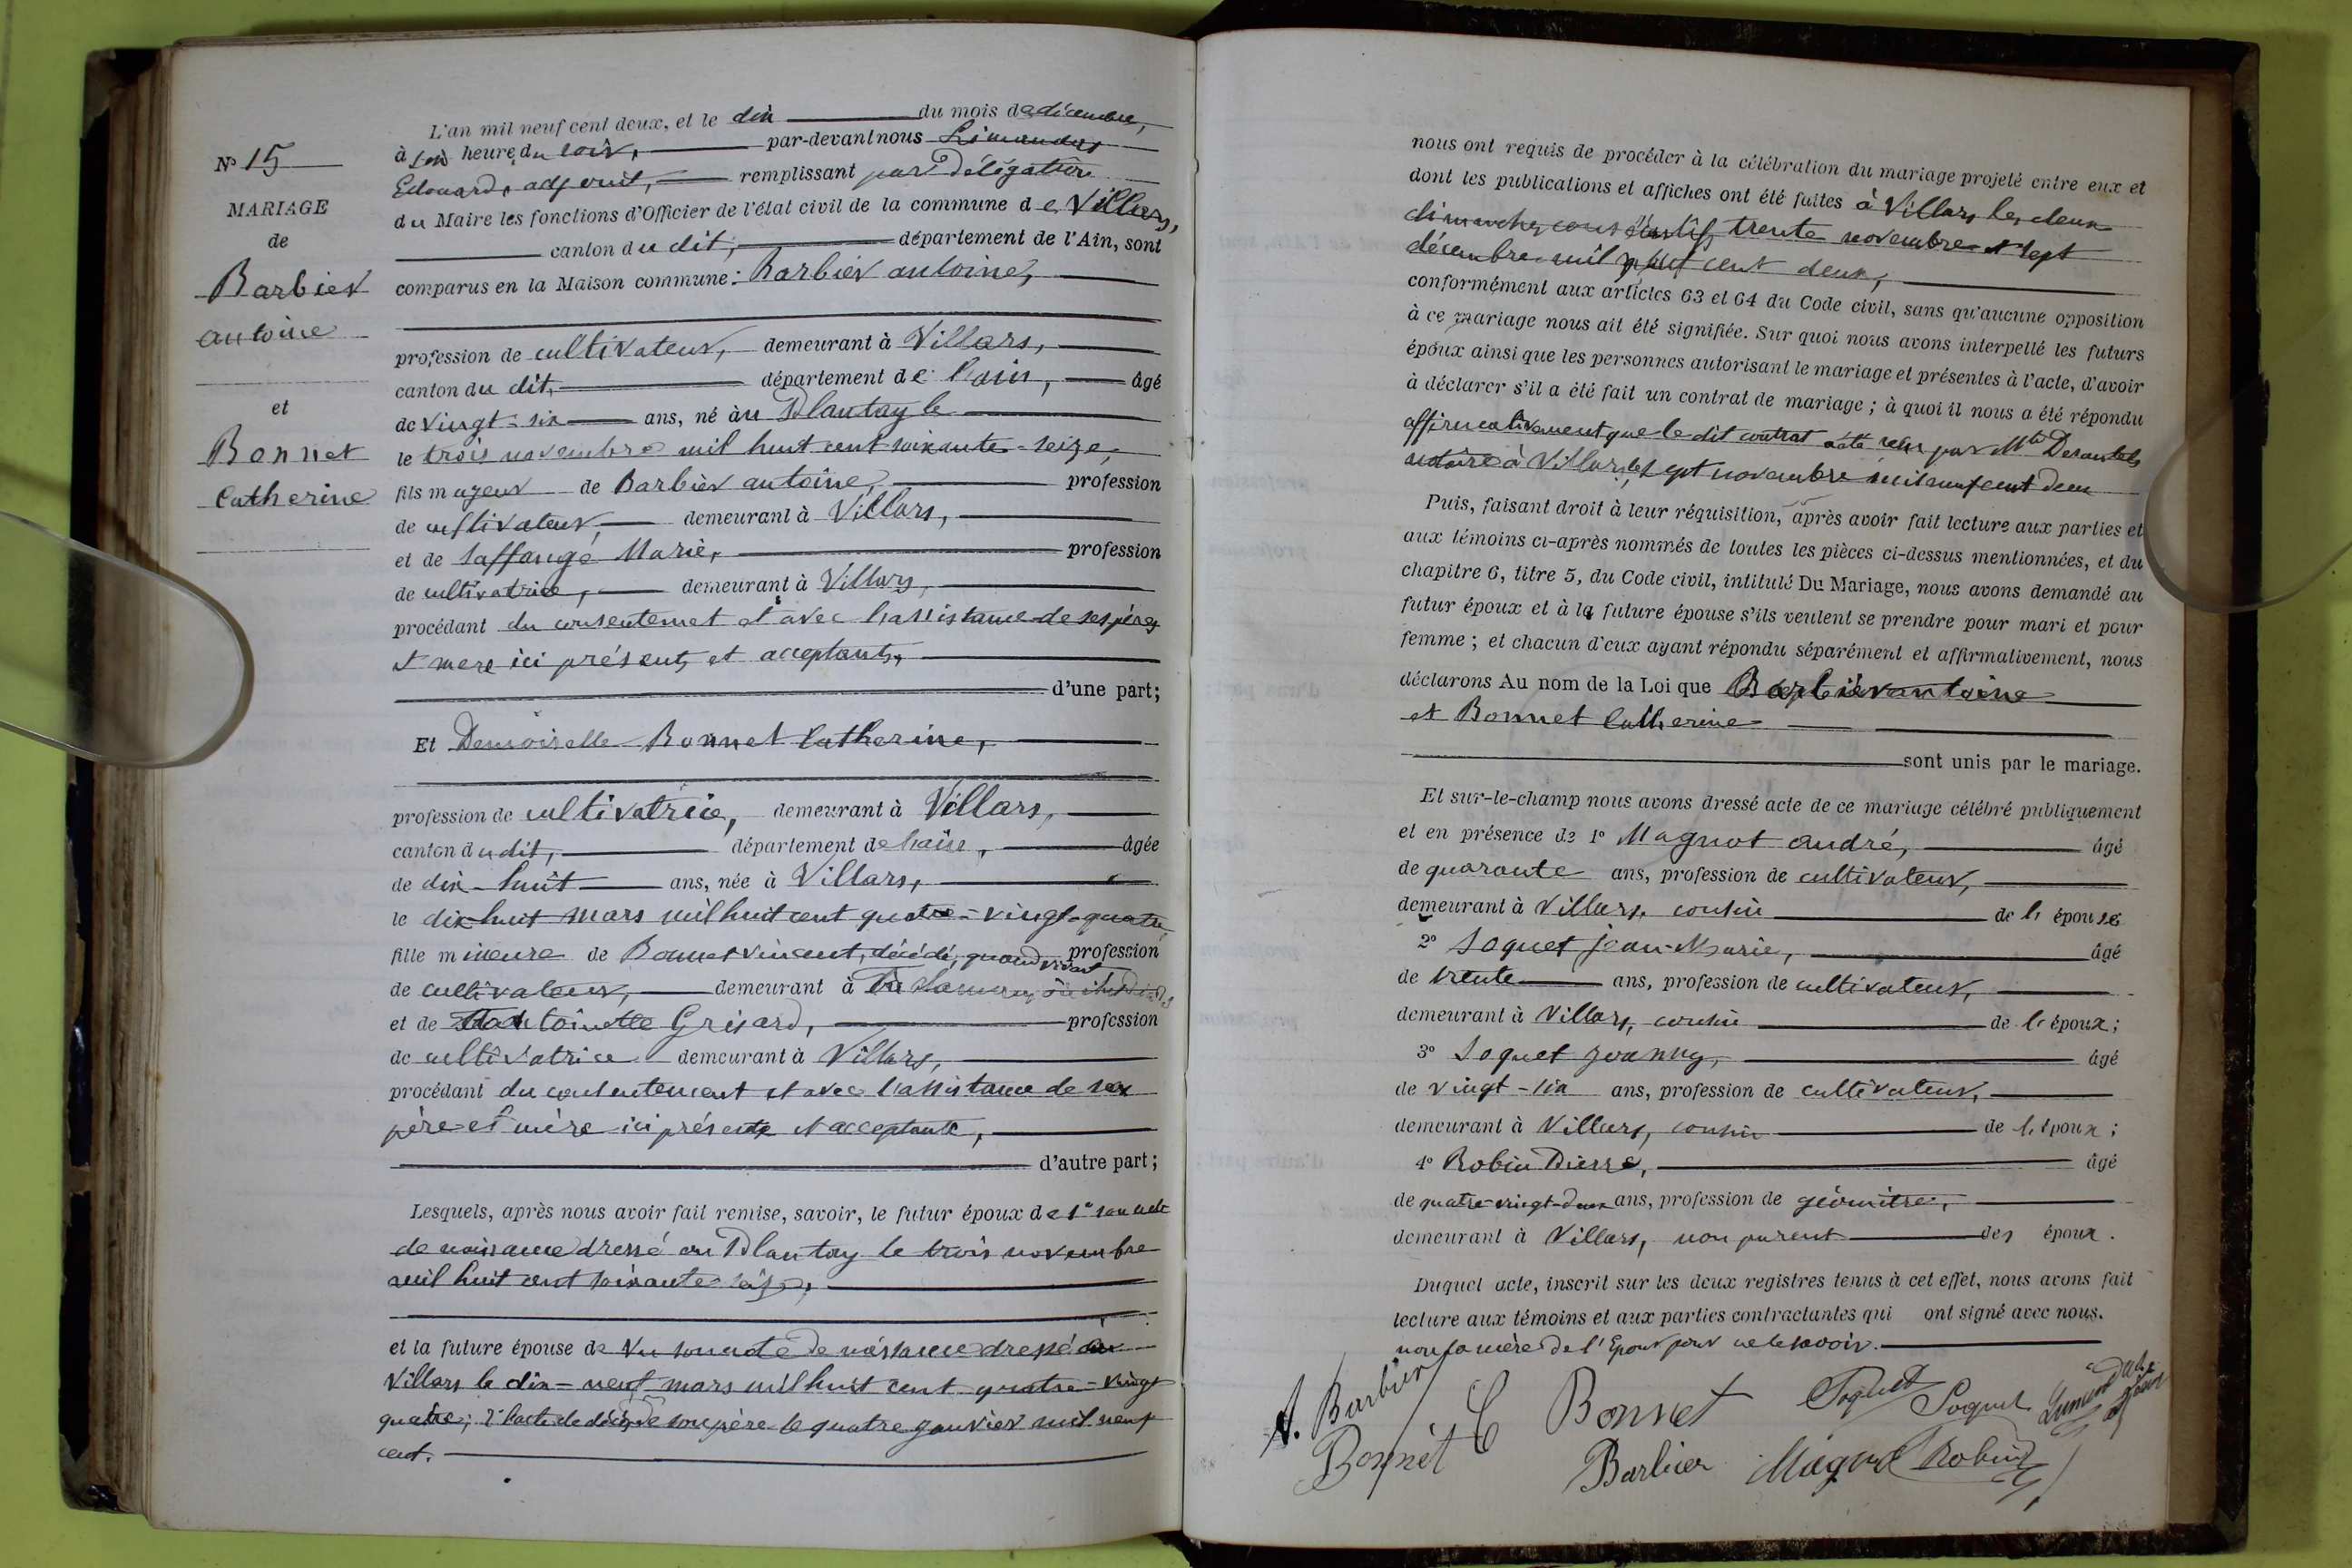 N° 15
MARIAGE
de
Barbier
antoine
et
Bonnet
Catherine
L'an mil neuf cent deux, et le dix du mois de décembre,
à six heure du soir, par-devant nous Limandas
Edouard, adjoint, remplissant par Délégation
du Maire les fonctions d'Officier de l'état civil de la commune de Villars,
canton du dit, département de l'Ain, sont
comparus en la Maison commune : Barbier antoine,
profession de cultivateur, demeurant à Villars,
canton du dit, département de l'ain, âgé
de vingt-six ans, né àu Plantay le
le trois novembre mil huit cent soixante-seize,
fils majeur de Barbier antoine, profession
de cultivateur, demeurant à Villars,
et de Laffange Marie, profession
de cultivatrice, demeurant à Villars,
procédant du consentemet et avec l'assistance de ses pères
et mere ici présents et acceptants,
d'une part;
Et Demoiselle Bonnet Catherine,
profession de cultivatrice, demeurant à Villars,
canton du dit, département de l'ain, âgée
de dix-huit ans, née à Villars,
le dix-huit mars mil huit cent quatre-vingt-quatre
fille mineure de Bonnet Vincent, décédé, quand vivant profession
de cultivateur, demeurant à
et de antoinette Grisard, profession
de cultivatrice demeurant à Villars,
procédant du consentement et avec l'assistance de sa
père et mère ici présente et acceptante,
d'autre part;
Lesquels, après nous avoir fait remise, savoir, le futur époux de 1° son acte
de naissance dressé au Plantay le trois novembre
mil huit cent soixante-seize,
et la future épouse de son acte de naissance dressé à
Villars le dix-neuf mars mil huit cent quatre-vingt
quatre; 2° l'acte de décès de son père le quatre janvier mil neuf
cent.
nous ont requis de procéder à la célébration du mariage projeté entre eux et
dont les publications et affiches ont été faites à Villars les deux
dimanches consécutifs trente novembre et sept
décembre mil neuf cent deux,
conformément aux articles 63 et 64 du Code civil, sans qu'aucune opposition
à ce mariage nous ait été signifiée. Sur quoi nous avons interpellé les futurs
époux ainsi que les personnes autorisant le mariage et présentes à l'acte, d'avoir
à déclarer s'il a été fait un contrat de mariage ; à quoi il nous a été répondu
affirmativement que le dit contrat a été reçu par Mtre
notaire à Villars, le sept novembre mil neuf cent deux
Puis, faisant droit à leur réquisition, après avoir fait lecture aux parties et
aux témoins ci-après nommés de toutes les pièces ci-dessus mentionnées, et du
chapitre 6, titre 5, du Code civil, intitulé Du Mariage, nous avons demandé au
futur époux et à la future épouse s'ils veulent se prendre pour mari et pour
femme ; et chacun d'eux ayant répondu séparément et affirmativement, nous
déclarons Au nom de la Loi que Barbier antoine
et Bonnet Catherine
sont unis par le mariage.
Et sur-le-champ nous avons dressé acte de ce mariage célébré publiquement
et en présence de 1° Magnot andré, âgé
de quarante ans, profession de cultivateur,
demeurant à Villars, cousin de l'épouse
2° Soquet jean-Marie, âgé
de trente ans, profession de cultivateur,
demeurant à Villars, cousin de l'époux;
3° Soquet joanny, âgé
de vingt-six ans, profession de cultivateur,
demeurant à Villars, cousin de l'époux;
4° Robin Pierre, âgé
de quatre-vingt-deux ans, profession de géomètre,
demeurant à Villars, non parent des époux.
Duquel acte, inscrit sur les deux registres tenus à cet effet, nous avons fait
lecture aux témoins et aux parties contractantes qui ont signé avec nous.
non la mère de l'Epoux pour ne le savoir.
A. Barbier Bonnet Soquet Soquet
Bonnet C Barbier Magnot Robin